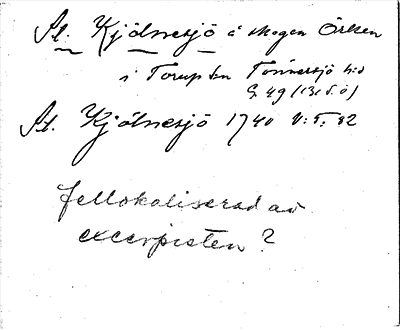 St. Kjölnesjö å skogen Örken
i Torup sn Tönnersjö hd
G 49 (131 S. Ö)
St. Kjölnesjö 1740 V: T, 82
fellokaliserad av
excerpisten?